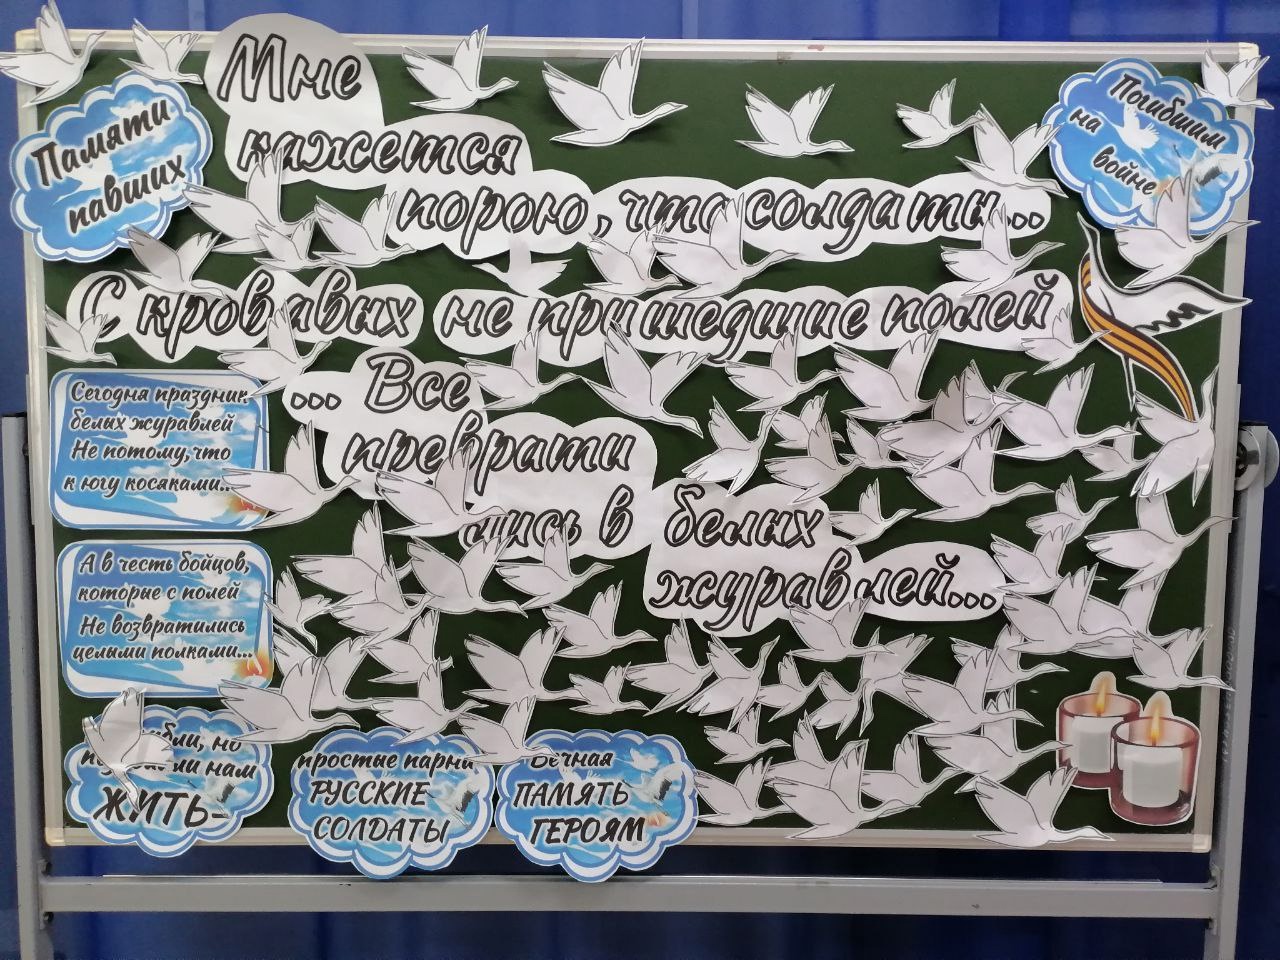 Памяти
павших
Мне
кажется
порою, что солдаты...
Погибшим
на
войне
С кровавых не пришедшие полей
... Все
преврати
лись в белых
журавлей...
Сегодня праздник
белых журавлей
Не потому, что
к югу косяками...
А в честь бойцов,
которые с полей
Не возвратились
целыми полками...
но
нам
ЖИТЬ-
простые парни
РУССКИЕ
СОЛДАТЫ
Вечная
ПАМЯТЬ
ГЕРОЯМ